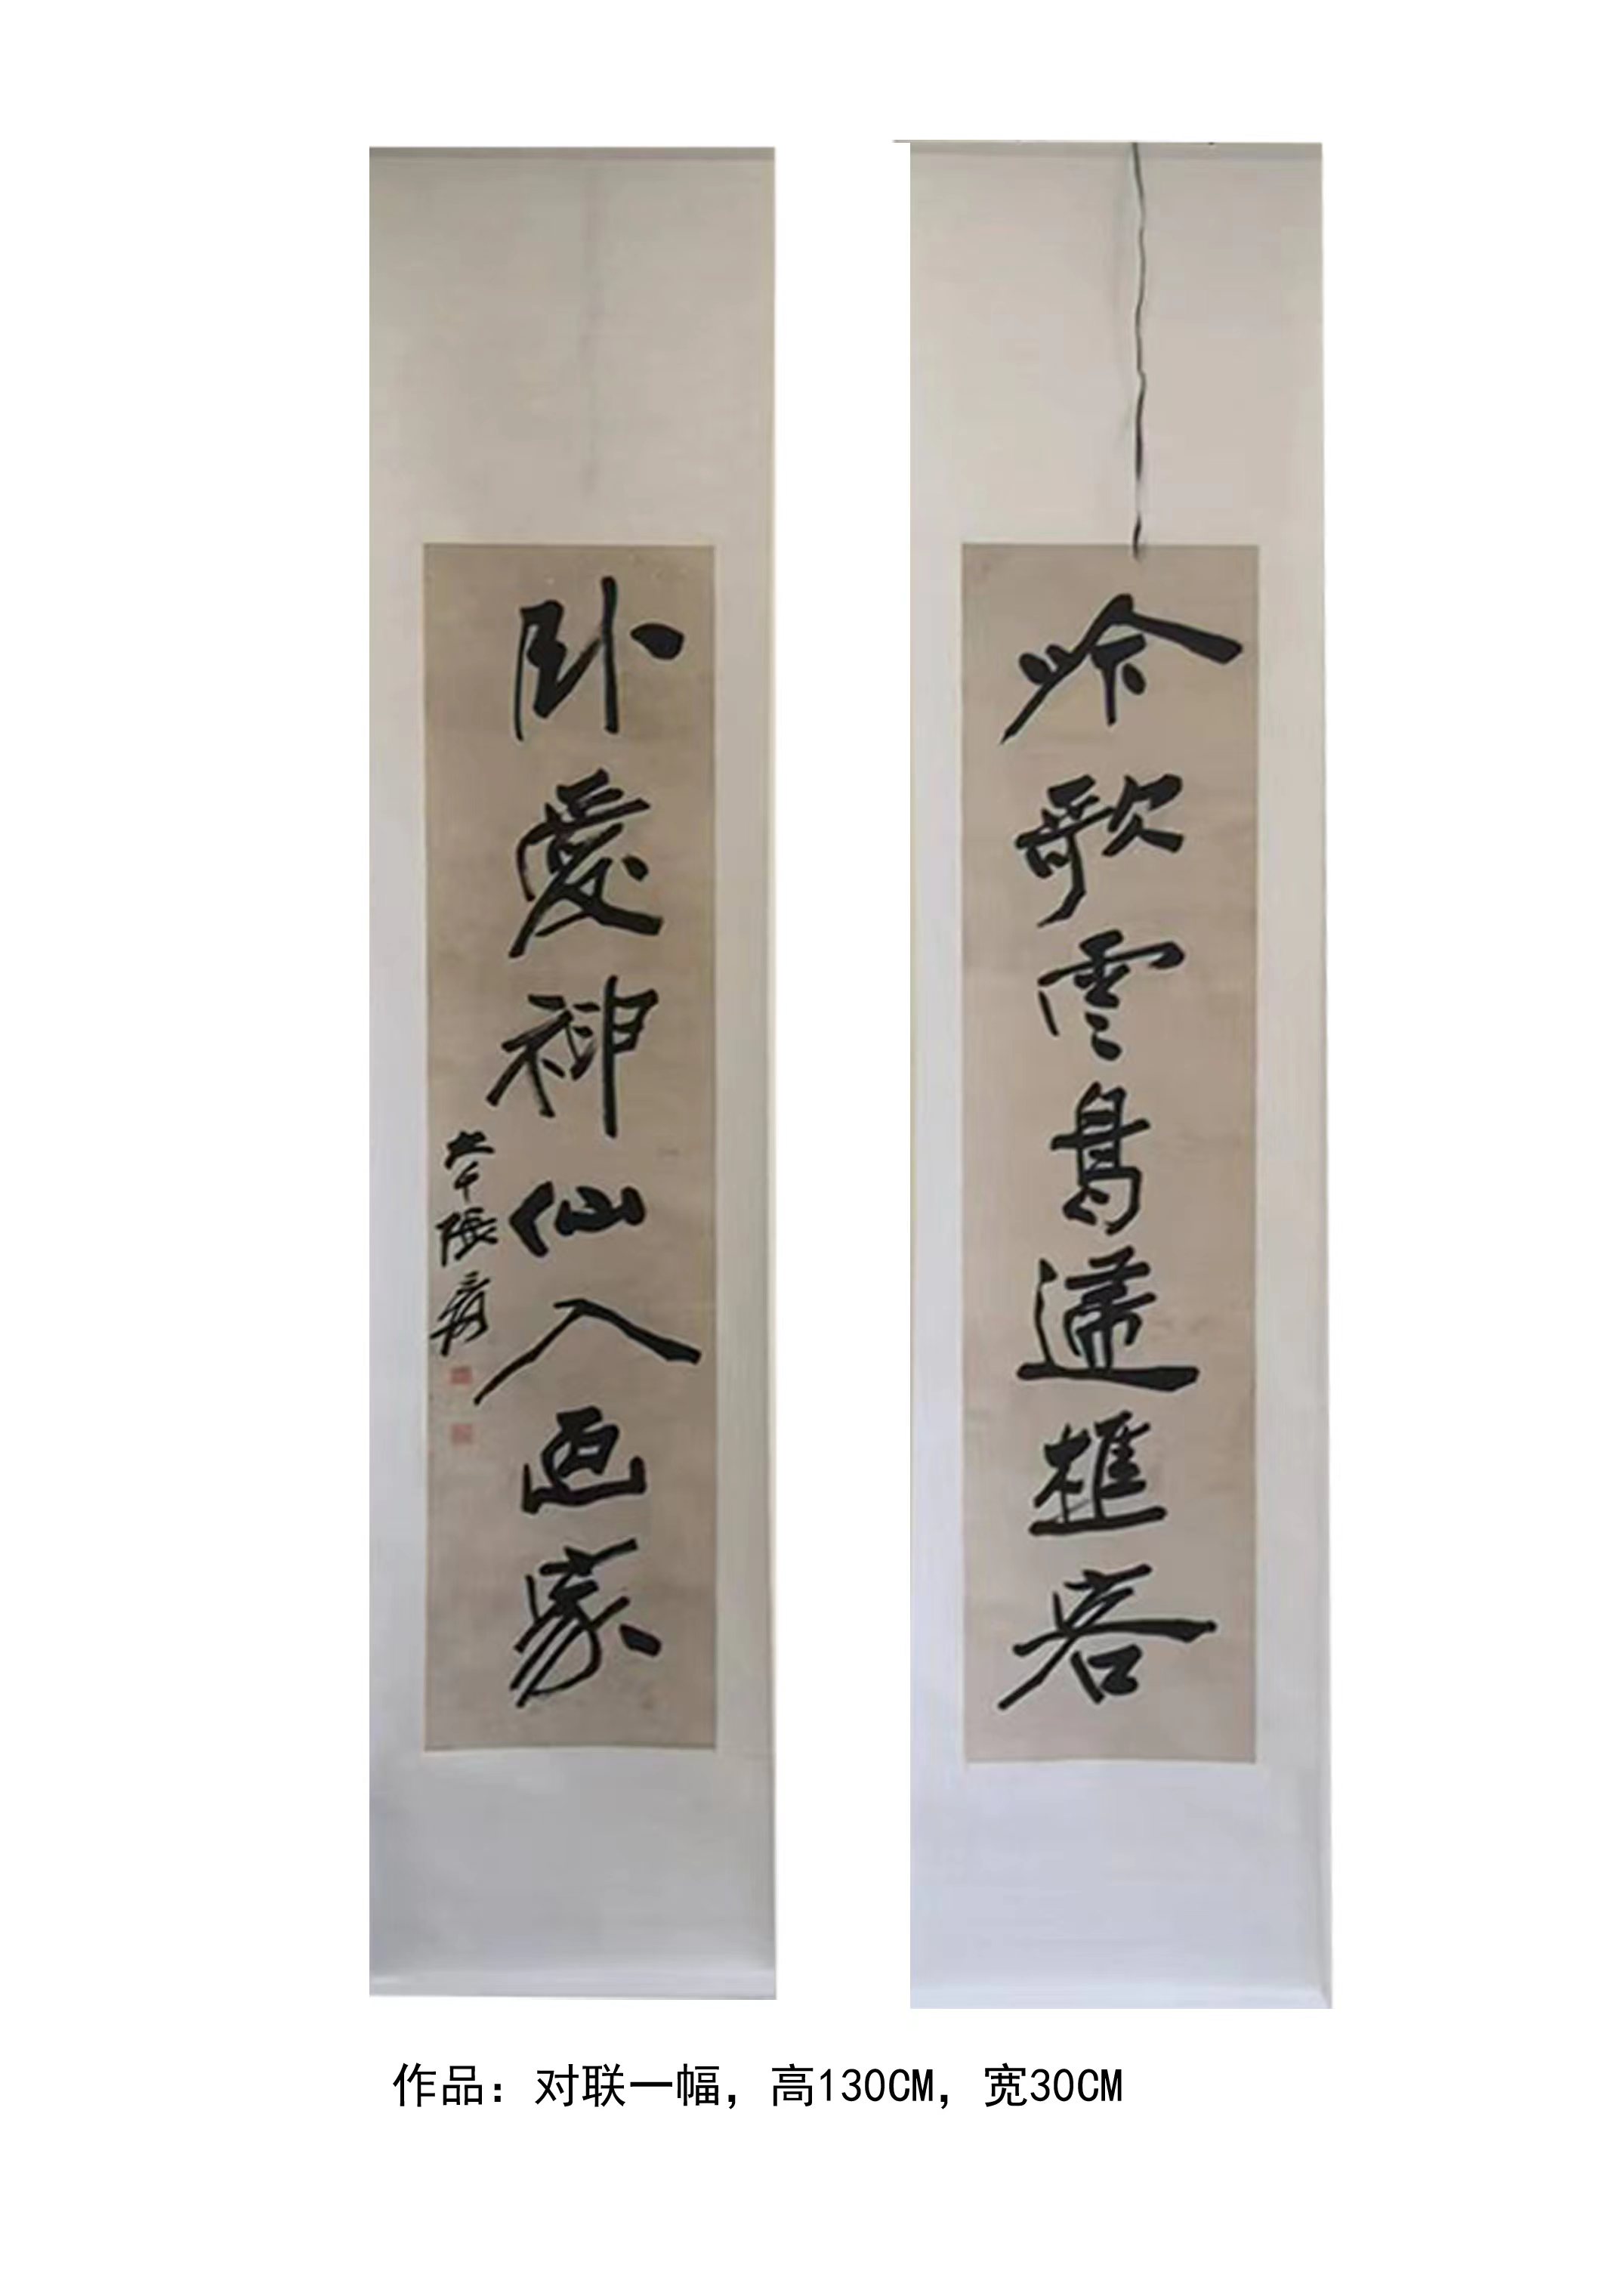 吟歌雲鳥遷樵客
卧愛神仙入画家
大千張爰
作品：对联一幅，高130CM，宽30CM